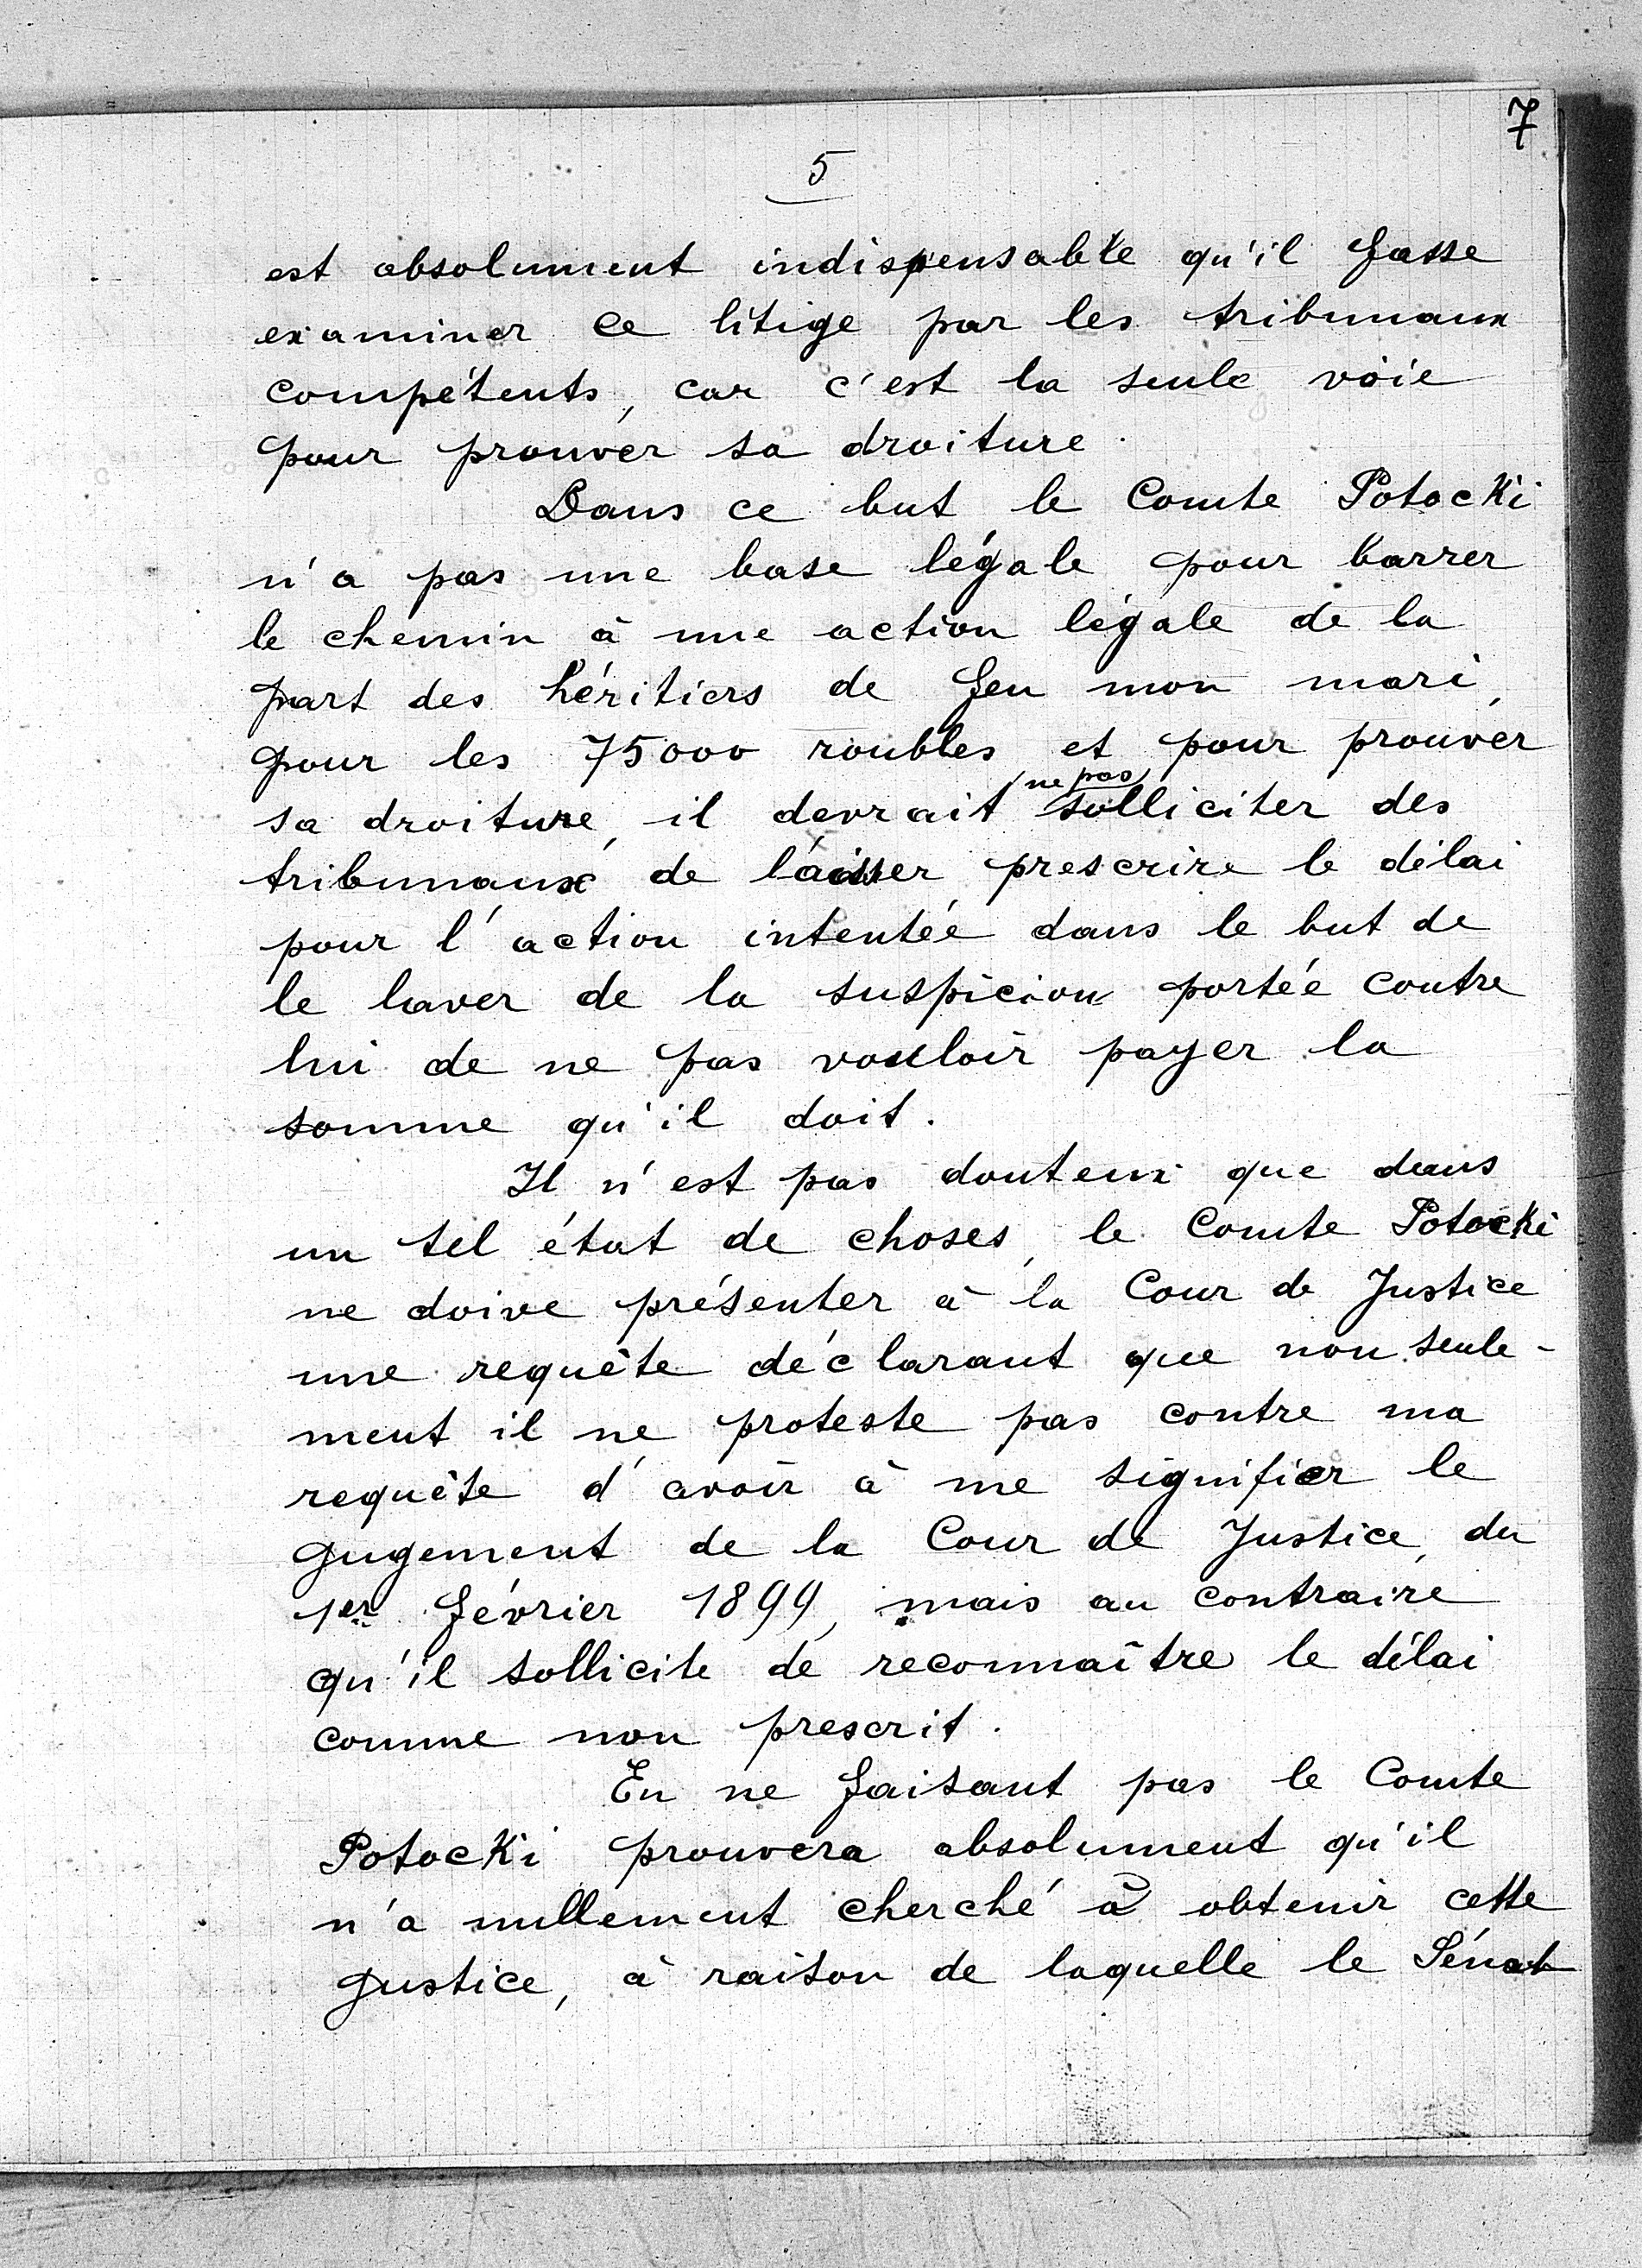 7
5
est absolument indispensable qu'il fasse
examiner ce litige par les tribunaux
compétents, car c'est la seule voie
pour prouver sa droiture.
Dans ce but, le Comte Potocki
n'a pas une base légale pour barrer
le chemin à une action légale de la
part des héritiers de feu mon mari,
pour les 75000 roubles et pour prouver
ne pas
sa droiture, il devrait solliciter des
tribunaux de laisser prescrire le délai
pour l'action intentée dans le but de
le laver de la suspicion portée contre
lui de ne pas vouloir payer la
somme qu'il doit.
Il n'est pas douteux que dans
un tel état de choses, le Comte Potocki
ne doive présenter à la Cour de Justice
une requête déclarant que non seule-
ment il ne proteste pas contre ma
requête d'avoir à me signifier le
jugement de la Cour de Justice, du
1er février 1899, mais au contraire
qu'il sollicite de reconnaître le délai
comme non prescrit.
En ne faisant pas le Comte
Potocki prouvera absolument qu'il
n'a nullement cherché à obtenir cette
justice, à raison de laquelle le Sénat